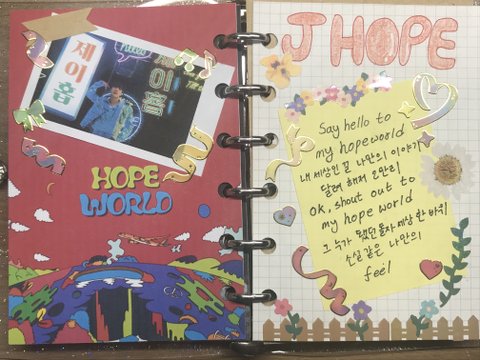 제이홉
Hello
제이홉
HOPE
WORLD
J HOPE
Say hello to
my hopeworld
내 세상인 꿈 나만의 이야기
달려 해저 2만리
OK, shout out to
my hope world
그 누가 됐던 놀자 세상 한 바퀴
손실 같은 나만의
feel